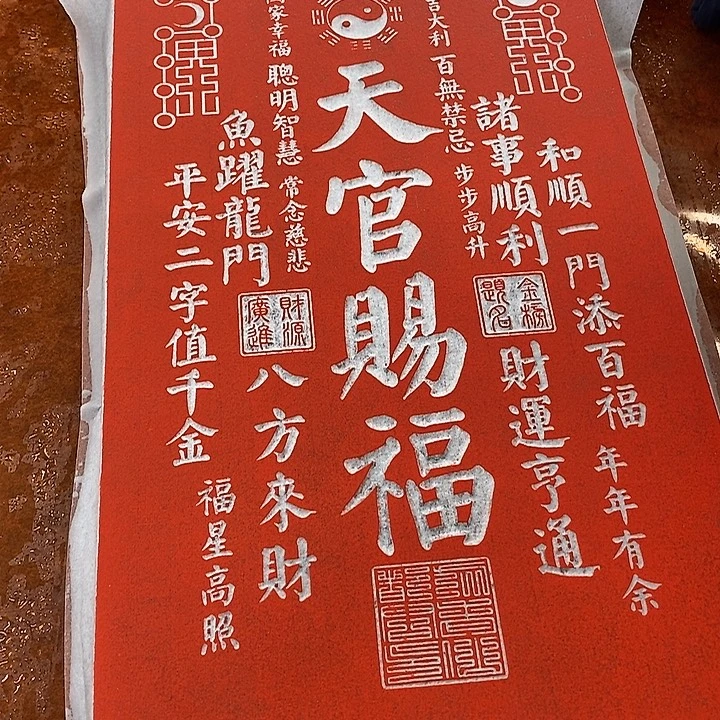 和順一門添百福
年年有余
諸事順利
財運亨通
金榜題名
吉大利
百無禁忌
步步高升
天官賜福
家幸福
聰明智慧
常念慈悲
魚躍龍門
財源廣進
八方來財
平安二字值千金
福星高照